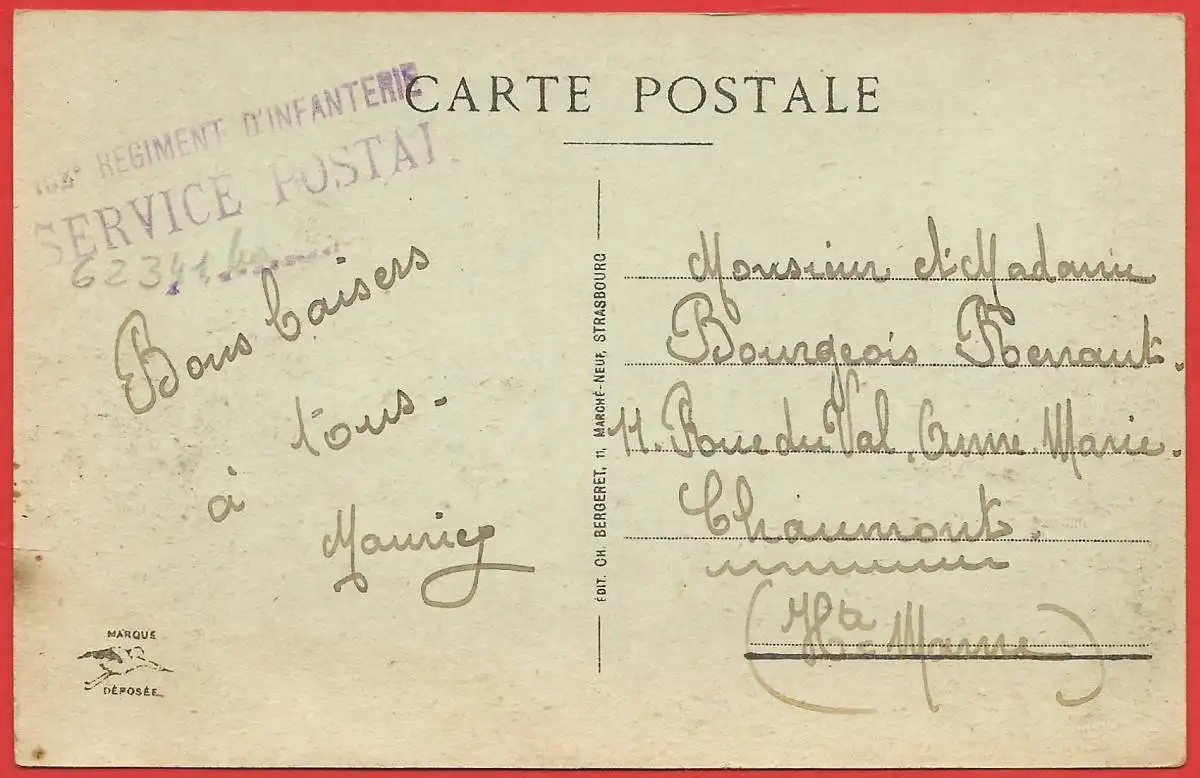 CARTE POSTALE
RÉGIMENT D'INFANTERIE
SERVICE POSTAL
62341.
Bons baisers
à tous.
Maurice
MARQUE
DÉPOSÉE
ÉDIT. CH. BERGERET, 11, MARCHÉ-NEUF, STRASBOURG
Monsieur et Madame
Bourgeois Renaut.
11. Rue du Val. Anne Marie.
Chaumont.
(Hte Marne)